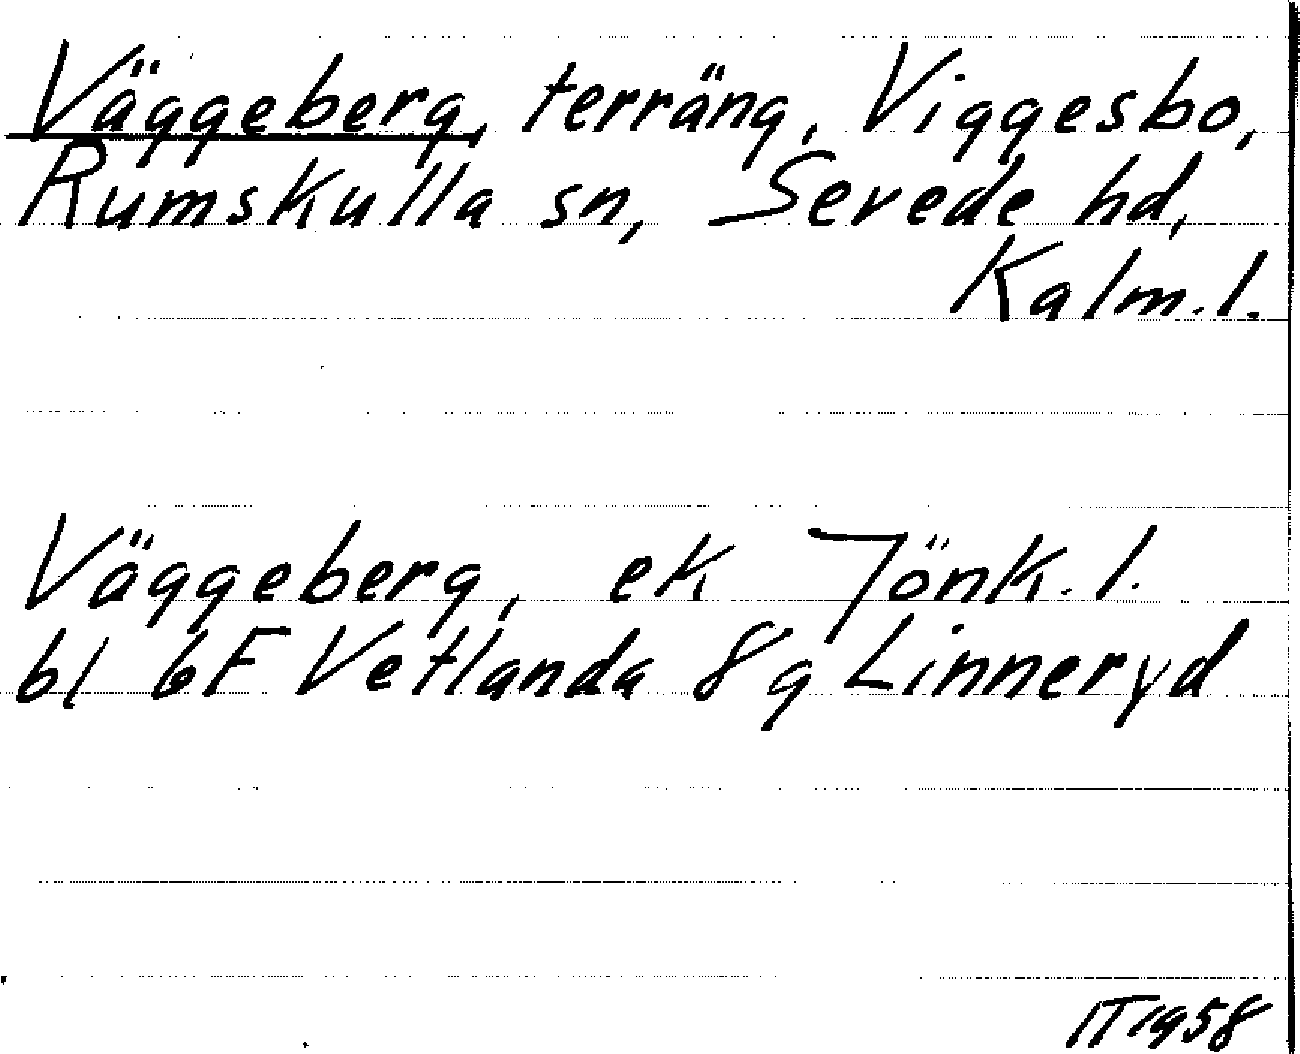 Väggeberg, terräng, Viggesbo,
Rumskulla sn, Sevede hd,
Kalm.l.
Väggeberg, ek Jönk.l.
bl 6F Vetlanda 8g Linneryd
IT 1958